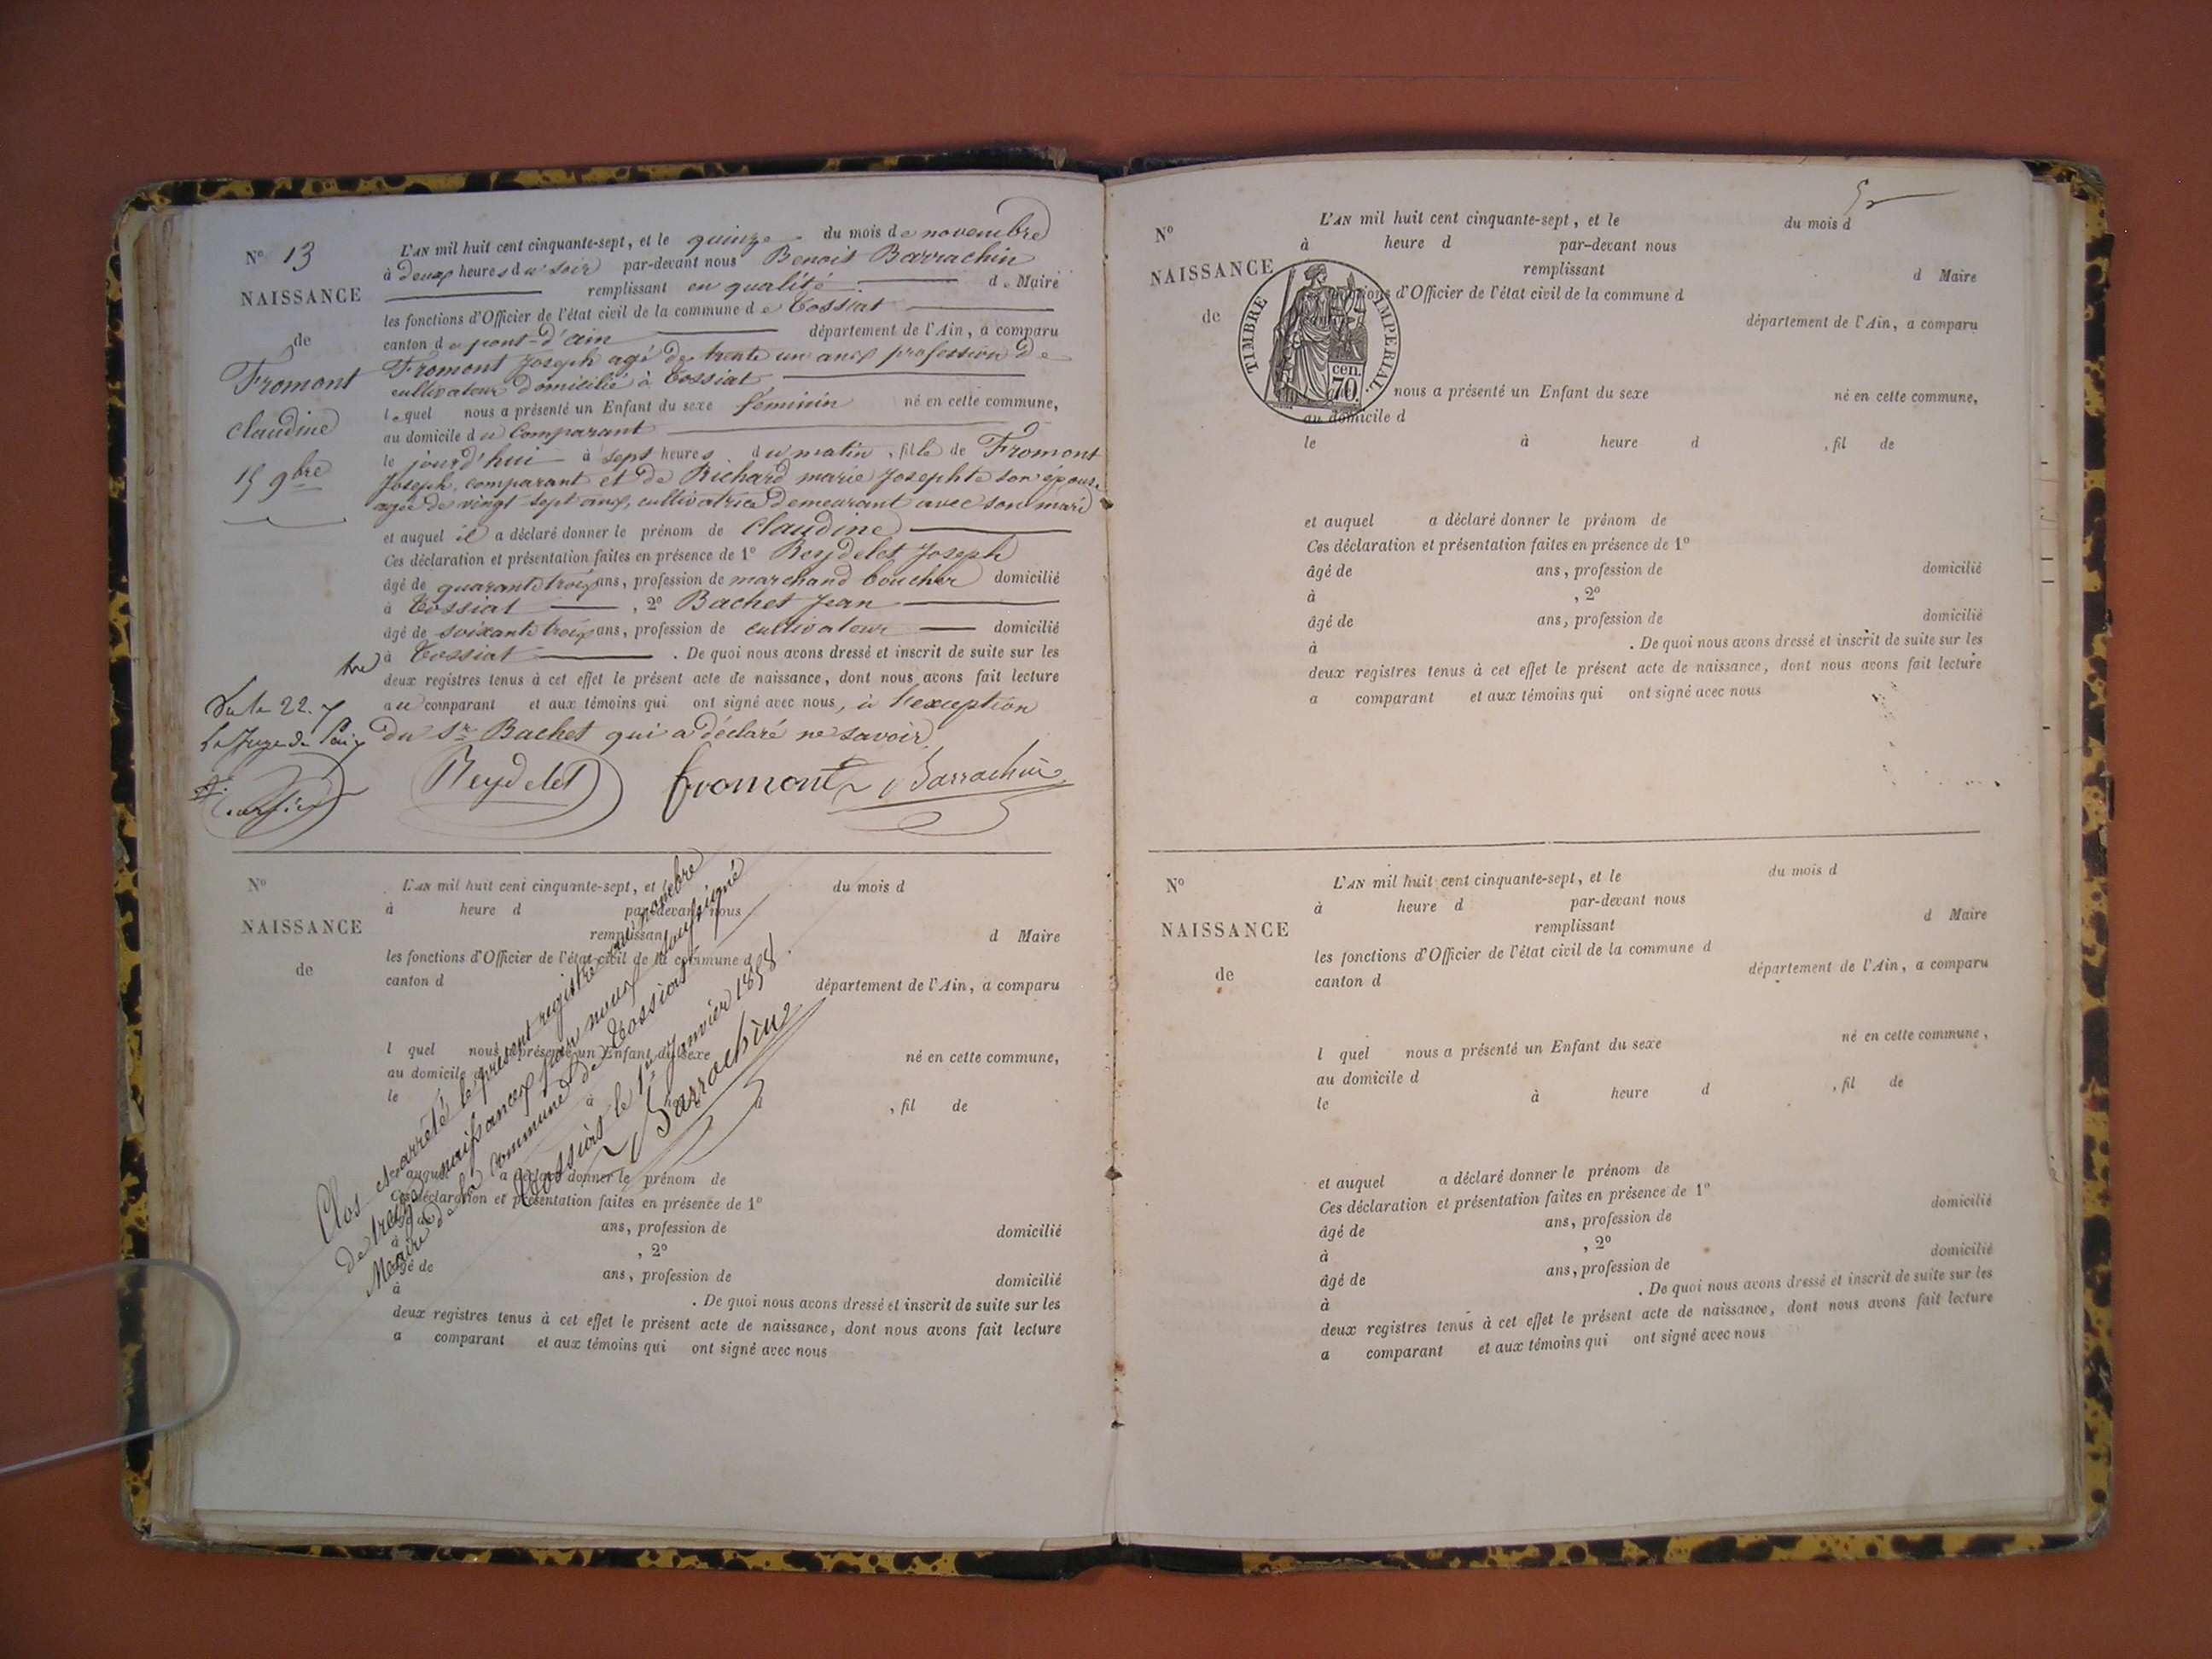 N° 13
NAISSANCE
de
Fromont
Claudine
15 9bre
L'AN mil huit cent cinquante-sept, et le quinze du mois de novembre
à deux heures du soir par-devant nous Benoit Barrachin
remplissant en qualité de Maire
les fonctions d'Officier de l'état civil de la commune de Tossiat
canton de pont-d'ain département de l'Ain, a comparu
Fromont Joseph agé de trente un ans profession de
cultivateur domicilié à Tossiat,
lequel nous a présenté un Enfant du sexe féminin né en cette commune,
au domicile du Comparant
le jourd'hui à sept heures du matin, fille de Fromont
Joseph, comparant et de Richard marie Josephte son épouse
agée de vingt-sept ans, cultivatrice demeurant avec son mari
et auquel il a déclaré donner le prénom de Claudine
Ces déclaration et présentation faites en présence de 1° Reydelet Joseph
âgé de quarante trois ans, profession de marchand boucher domicilié
à Tossiat , 2° Bachet Jean
âgé de soixante trois ans, profession de cultivateur domicilié
à Tossiat . De quoi nous avons dressé et inscrit de suite sur les
deux registres tenus à cet effet le présent acte de naissance, dont nous avons fait lecture
au comparant et aux témoins qui ont signé avec nous, à l'exception
du Sr Bachet qui a déclaré ne savoir.
Le Juge de Paix
Reydelet Fromont Barrachin
N°
NAISSANCE
de
L'AN mil huit cent cinquante-sept, et le du mois d
à heure d par-devant nous
remplissant d Maire
les fonctions d'Officier de l'état civil de la commune d
canton d département de l'Ain, a comparu
l quel nous a présenté un Enfant du sexe né en cette commune,
au domicile d
le à heure d , fil de
et auquel a déclaré donner le prénom de
Ces déclaration et présentation faites en présence de 1°
âgé de ans, profession de domicilié
à , 2°
âgé de ans, profession de domicilié
à . De quoi nous avons dressé et inscrit de suite sur les
deux registres tenus à cet effet le présent acte de naissance, dont nous avons fait lecture
a comparant et aux témoins qui ont signé avec nous
Clos et arrêté le présent registre au nombre
de treize naissances par nous soussigné
Maire de la commune de Tossiat
Tossiat le 1er Janvier 1858.
Barrachin
N°
NAISSANCE
de
L'AN mil huit cent cinquante-sept, et le du mois d
à heure d par-devant nous
remplissant d Maire
fonctions d'Officier de l'état civil de la commune d
département de l'Ain, a comparu
TIMBRE IMPERIAL.
cen.
70
nous a présenté un Enfant du sexe né en cette commune,
au domicile d
le à heure d , fil de
et auquel a déclaré donner le prénom de
Ces déclaration et présentation faites en présence de 1°
âgé de ans, profession de domicilié
à , 2°
âgé de ans, profession de domicilié
à . De quoi nous avons dressé et inscrit de suite sur les
deux registres tenus à cet effet le présent acte de naissance, dont nous avons fait lecture
a comparant et aux témoins qui ont signé avec nous
N°
NAISSANCE
de
L'AN mil huit cent cinquante-sept, et le du mois d
à heure d par-devant nous
remplissant d Maire
les fonctions d'Officier de l'état civil de la commune d
canton d département de l'Ain, a comparu
l quel nous a présenté un Enfant du sexe né en cette commune,
au domicile d
le à heure d , fil de
et auquel a déclaré donner le prénom de
Ces déclaration et présentation faites en présence de 1°
âgé de ans, profession de domicilié
à , 2°
âgé de ans, profession de domicilié
à . De quoi nous avons dressé et inscrit de suite sur les
deux registres tenus à cet effet le présent acte de naissance, dont nous avons fait lecture
a comparant et aux témoins qui ont signé avec nous